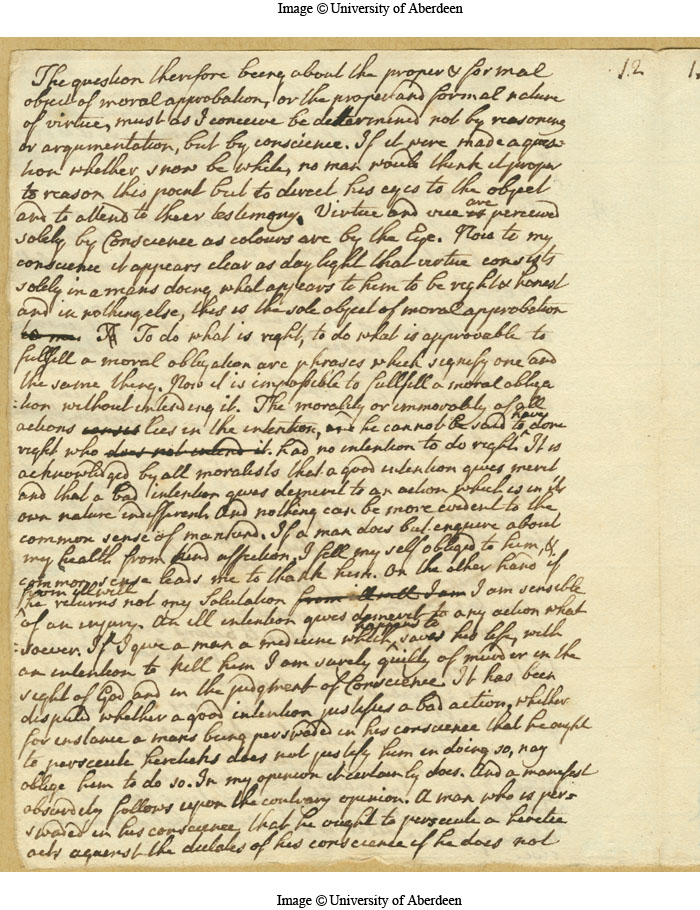 Image © University of Aberdeen
12
1
The question therefore being about the proper & formal
object of moral approbation, or the proper and formal nature
of virtue, must as I conceive be determined not by reasoning
or argumentation, but by conscience. If it were made a ques-
tion whether snow be white, no man would think it proper
to reason this point but to direct his eyes to the object
and to attend to their testimony. Virtue and vice are perceived
solely by Conscience as colours are by the Eye. Now to my
conscience it appears clear as day light that virtue consists
solely in a mans doing what appears to him to be right & honest
and in nothing else, this is the sole object of moral approbation
to me. To do what is right, to do what is approvable to
fullfill a moral obligation are phrases which signify one and
the same thing. Now it is impossible to fullfill a moral obliga
:tion without intending it. The morality or immorality of all
actions lies in the intention, he cannot be said to have done
right who does not intend it. had no intention to do right. It is
acknowledged by all moralists that a good intention gives merit
and that a bad intention gives demerit to an action which is in its
own nature indifferent. And nothing can be more evident to the
common sense of mankind. If a man does but enquire about
my health from kind affection, I fell my self obliged to him, &
common sense leads me to thank him. On the other hand if
from ill will
he returns not my Salutation from ill will I am I am sensible
of an injury. An ill intention gives demerit to any action what
:soever. If I give a man a medicine which happens to save his life, with
an intention to kill him I am surely guilty of murder in the
sight of God and in the judgment of Conscience. It has been
disputed whether a good intention justifies a bad action, whether
for instance a mans being perswaded in his conscience that he ought
to persecute hereticks does not justify him in doing so, nay
oblige him to do so. In my opinion it certainly does. And a manifest
absurdity follows upon the contrary opinion. A man who is per=
swaded in his conscience that he ought to persecute a heretic
acts against the dictates of his conscience if he does not
Image © University of Aberdeen